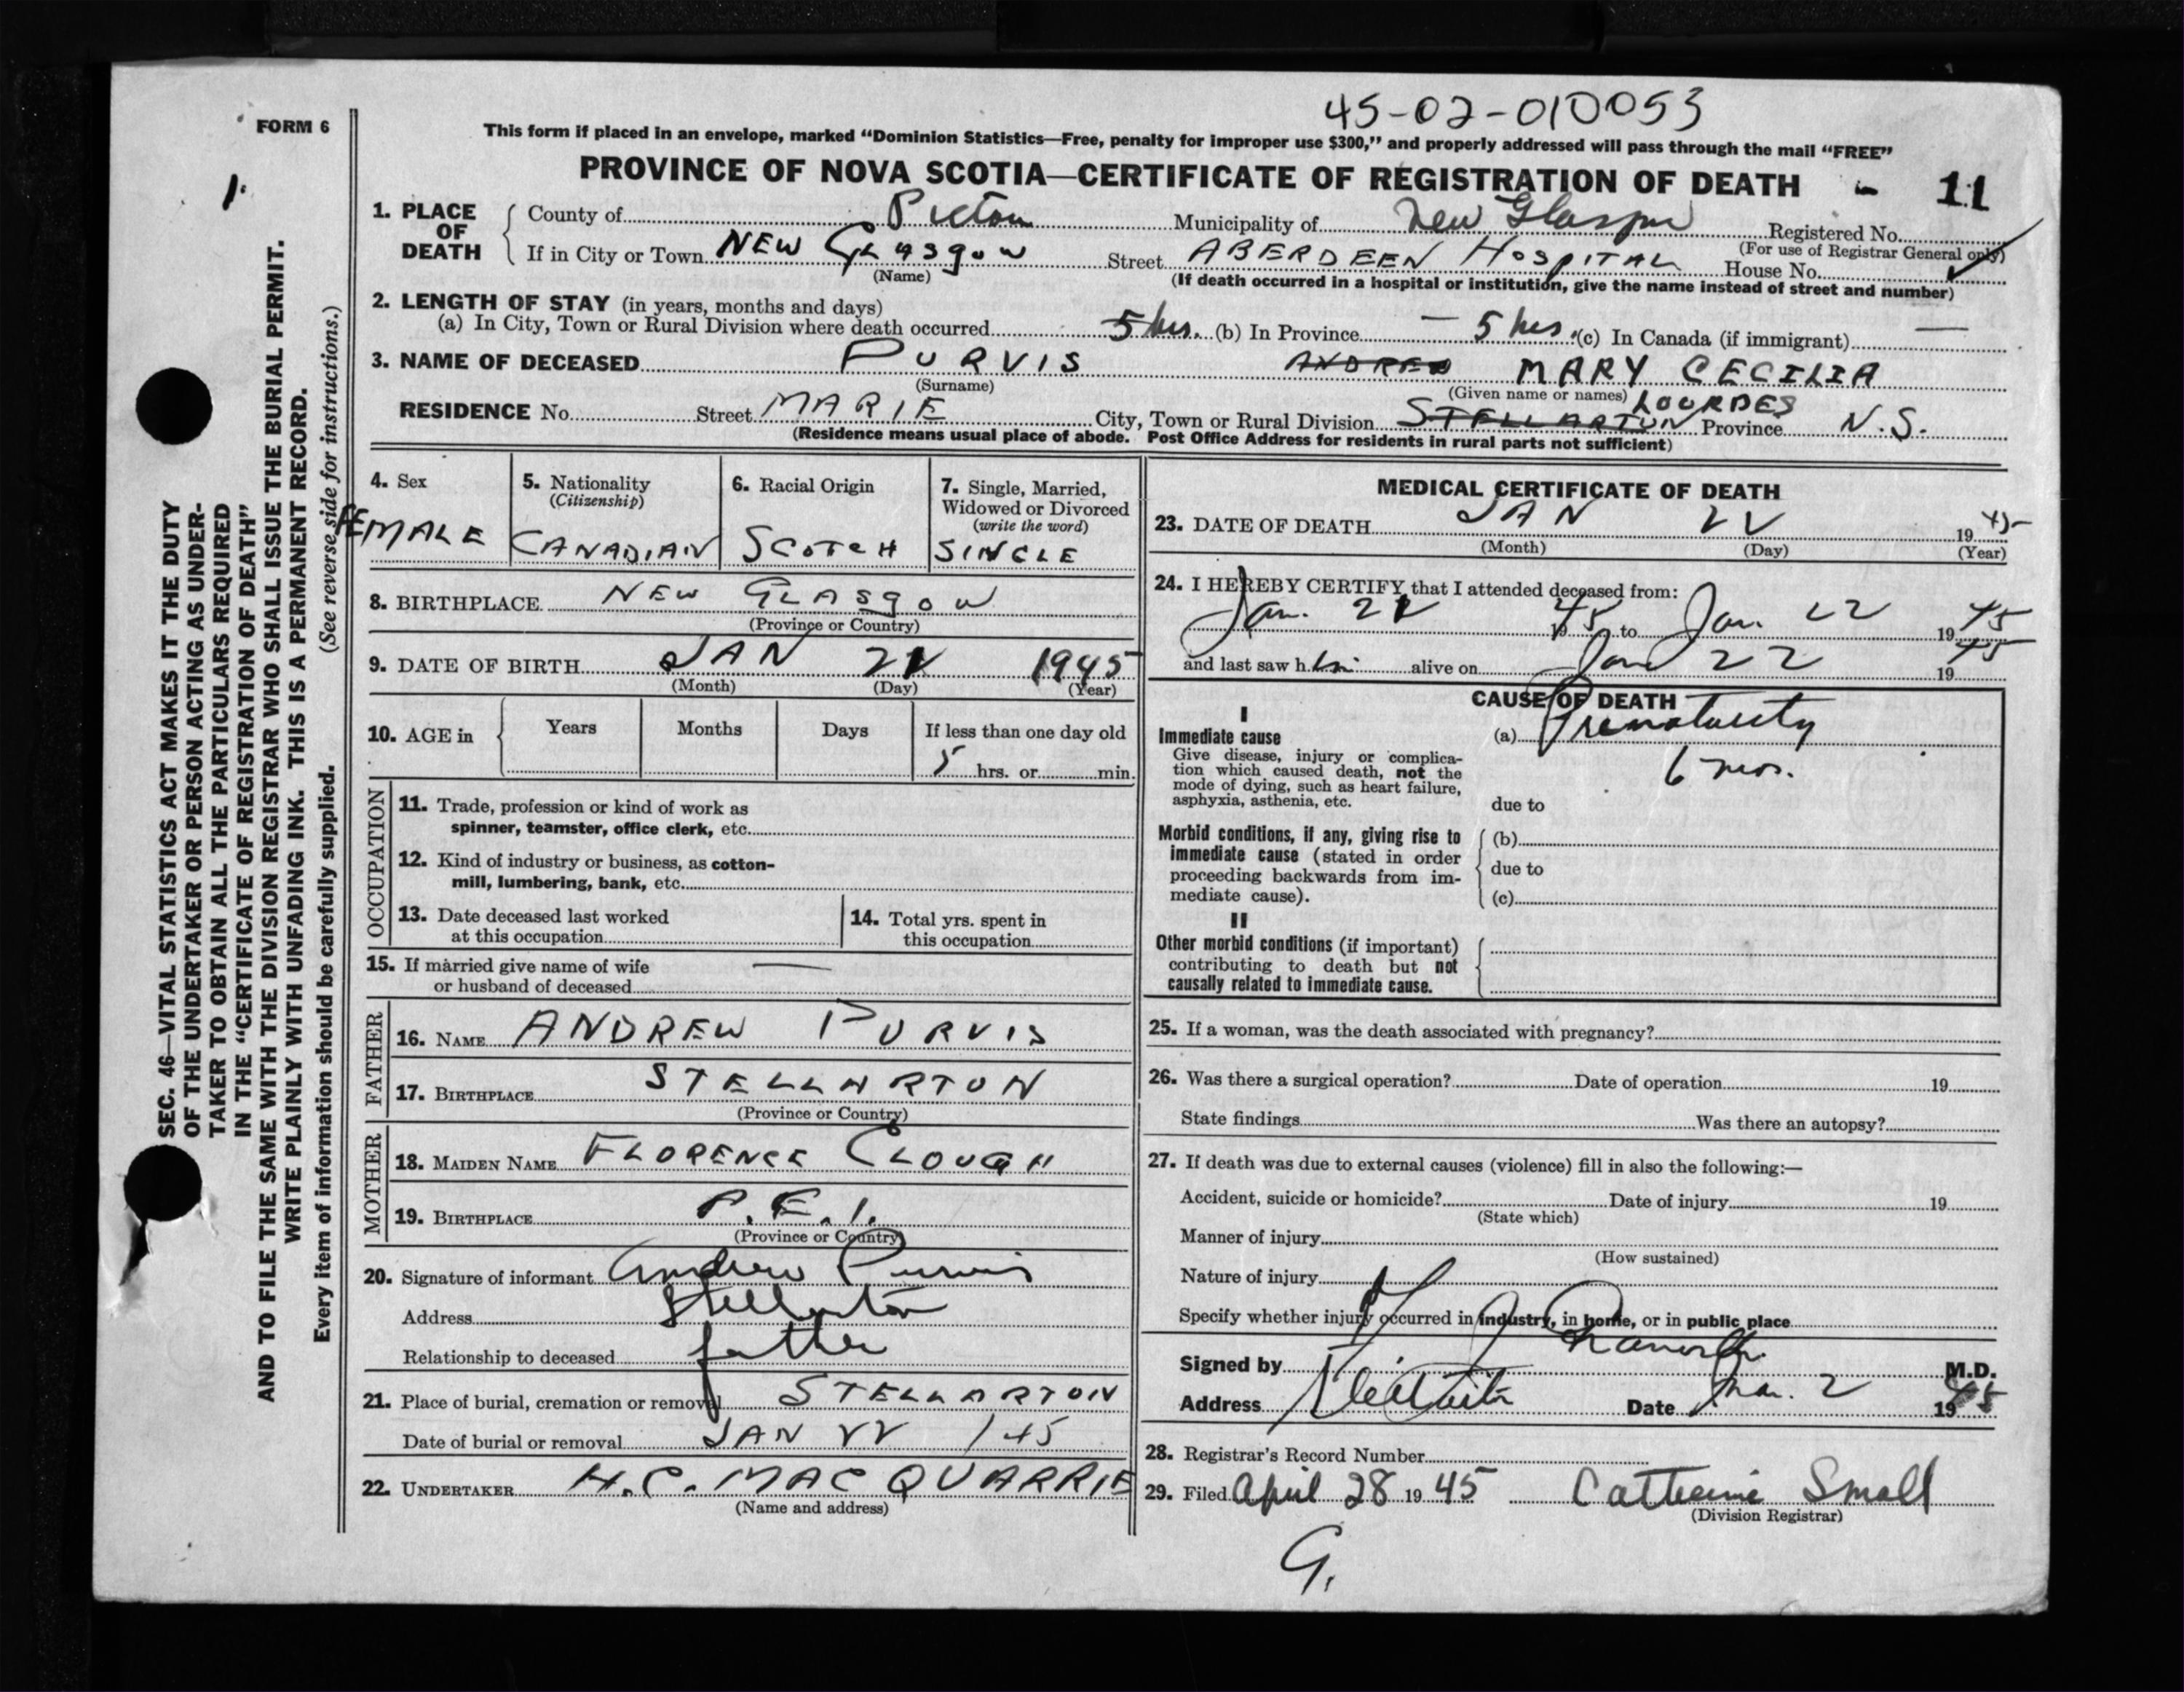 45-02-010053
FORM 6
This form if placed in an envelope, marked "Dominion Statistics—Free, penalty for improper use $300," and properly addressed will pass through the mail "FREE"
1.
PROVINCE OF NOVA SCOTIA—CERTIFICATE OF REGISTRATION OF DEATH - 11
SEC. 46—VITAL STATISTICS ACT MAKES IT THE DUTY
OF THE UNDERTAKER OR PERSON ACTING AS UNDER-
TAKER TO OBTAIN ALL THE PARTICULARS REQUIRED
IN THE "CERTIFICATE OF REGISTRATION OF DEATH"
AND TO FILE THE SAME WITH THE DIVISION REGISTRAR WHO SHALL ISSUE THE BURIAL PERMIT.
WRITE PLAINLY WITH UNFADING INK. THIS IS A PERMANENT RECORD.
Every item of information should be carefully supplied. (See reverse side for instructions.)
1. PLACE OF DEATH
County of Pictou Municipality of New Glasgow Registered No.
(For use of Registrar General only)
If in City or Town NEW GLASGOW Street ABERDEEN HOSPITAL House No.
(Name) (If death occurred in a hospital or institution, give the name instead of street and number)
2. LENGTH OF STAY (in years, months and days)
(a) In City, Town or Rural Division where death occurred 5 hrs. (b) In Province — 5 hrs. (c) In Canada (if immigrant) —
3. NAME OF DECEASED PURVIS ANDREW MARY CECILIA
(Surname) (Given name or names)
RESIDENCE No. Street MARIE City, Town or Rural Division STELLARTON LOURDES Province N.S.
(Residence means usual place of abode. Post Office Address for residents in rural parts not sufficient)
4. Sex FEMALE
5. Nationality (Citizenship) CANADIAN
6. Racial Origin SCOTCH
7. Single, Married, Widowed or Divorced (write the word) SINGLE
8. BIRTHPLACE NEW GLASGOW
(Province or Country)
9. DATE OF BIRTH JAN 22 1945
(Month) (Day) (Year)
10. AGE in Years Months Days If less than one day old
5 hrs. or min.
OCCUPATION
11. Trade, profession or kind of work as
spinner, teamster, office clerk, etc.
12. Kind of industry or business, as cotton-
mill, lumbering, bank, etc.
13. Date deceased last worked
at this occupation
14. Total yrs. spent in
this occupation
15. If married give name of wife —
or husband of deceased
FATHER
16. NAME ANDREW PURVIS
17. BIRTHPLACE STELLARTON
(Province or Country)
MOTHER
18. MAIDEN NAME FLORENCE CLOUGH
19. BIRTHPLACE P.E.I.
(Province or Country)
20. Signature of informant Andrew Purvis
Address Stellarton
Relationship to deceased father
21. Place of burial, cremation or removal STELLARTON
Date of burial or removal JAN 22 / 45
22. UNDERTAKER H.C. MACQUARRIE
(Name and address)
MEDICAL CERTIFICATE OF DEATH
23. DATE OF DEATH JAN 22 1945
(Month) (Day) (Year)
24. I HEREBY CERTIFY that I attended deceased from:
Jan. 22 1945 to Jan. 22 1945
and last saw h im alive on Jan 22 1945
CAUSE OF DEATH
I
Immediate cause (a) Prematurity
6 mos.
Give disease, injury or complica-
tion which caused death, not the
mode of dying, such as heart failure,
asphyxia, asthenia, etc. due to
Morbid conditions, if any, giving rise to
immediate cause (stated in order
proceeding backwards from im-
mediate cause).
(b)
due to
(c)
II
Other morbid conditions (if important)
contributing to death but not
causally related to immediate cause.
25. If a woman, was the death associated with pregnancy?
26. Was there a surgical operation? Date of operation 19
State findings Was there an autopsy?
27. If death was due to external causes (violence) fill in also the following:—
Accident, suicide or homicide? Date of injury 19
(State which)
Manner of injury
(How sustained)
Nature of injury
Specify whether injury occurred in industry, in home, or in public place
Signed by M.D.
Address Stellarton Date Mar. 2 1945
28. Registrar's Record Number
29. Filed April 28 1945 Catherine Small
(Division Registrar)
G.